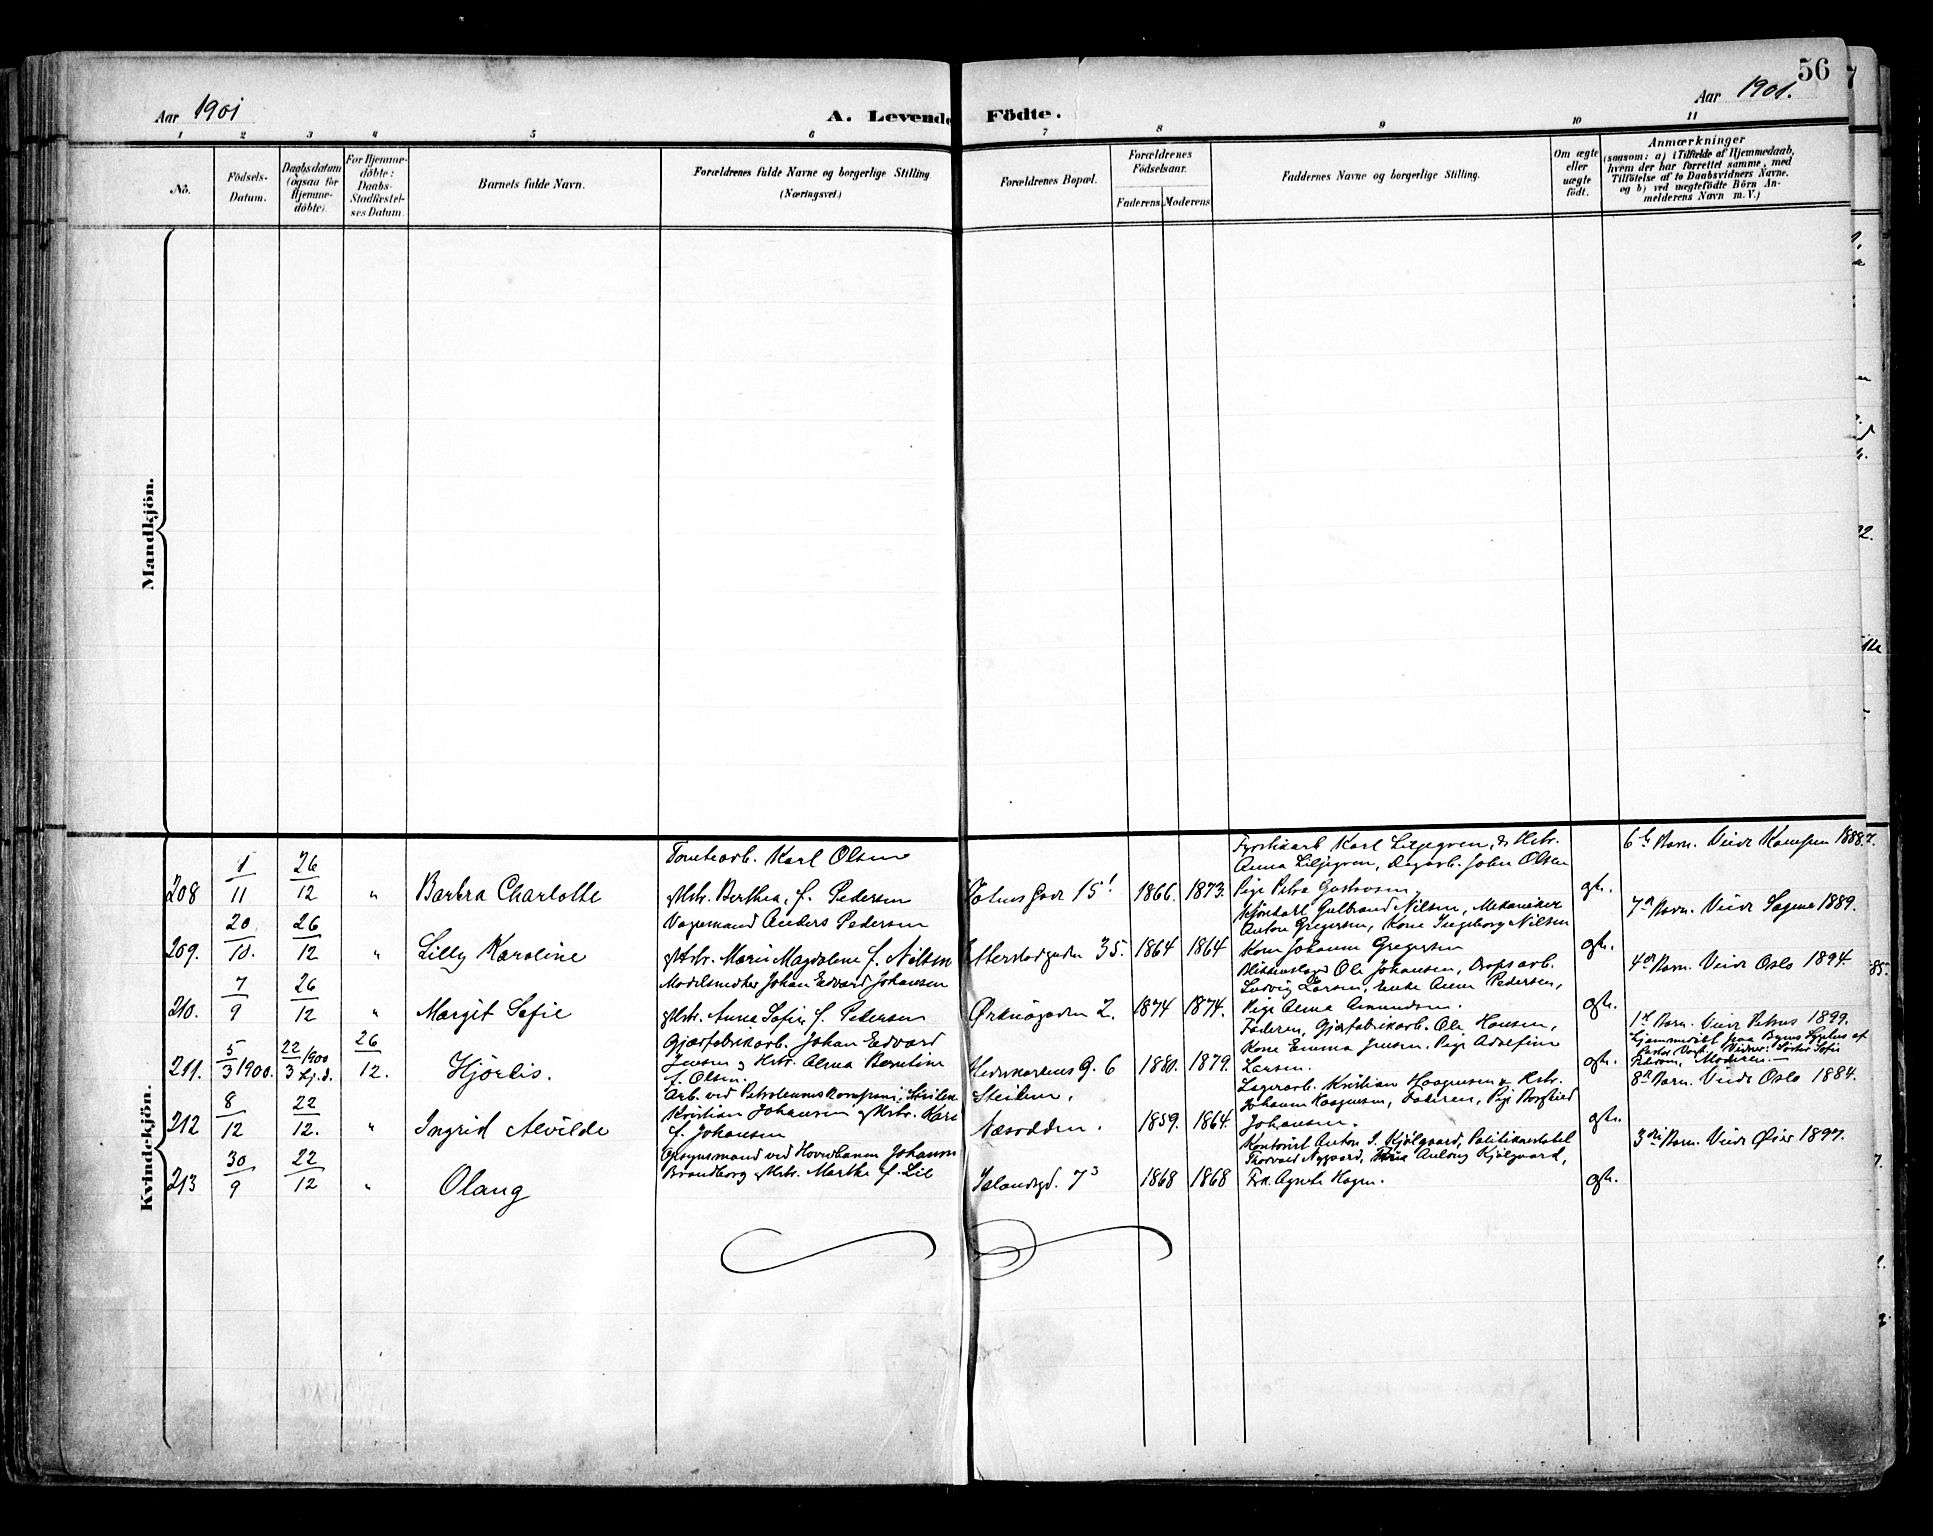 56
Aar 1901
A. Levende Födte.
Aar 1901.
1 2 3 4 5 6 7 8 9 10 11
No.
Födsels-
Datum.
Daabsdatum
(ogsaa for
Hjemme-
döbte).
For Hjemme-
döbte:
Daabs-
Stadfæstel-
ses Datum.
Barnets fulde Navn.
Forældrenes fulde Navne og borgerlige Stilling.
(Næringsvei.)
Forældrenes Bopæl.
Forældrenes
Födselsaar.
Faderens Moderens
Faddernes Navne og borgerlige Stilling.
Om ægte
eller
uægte
födt.
Anmærkninger
(saasom: a) i Tilfælde af Hjemmedaab,
hvem der har forrettet samme, med
Tilföielse af to Daabsvidners Navne,
og b) ved uægtefödte Börn An-
melderens Navn m. V.)
Mandkjön.
Kvindekjön.
208
1/11
26/12
"
Barbra Charlotte
Tomtearb. Karl Olsen
og Hstr. Berthea, f. Pedersen
15 1
1866.
1873.
Fyrstikarb Karl Liljegren, & Hstr.
Anna Liljegren, Dagarb. John Olsen
Pige Petra Gustavsen
gte.
6te Barn. Viede Kampen 1888.
209.
20/10.
26/12
"
Lilly Karoline
Vognmand Anders Pedersen
og Hstr. Marie Magdalene f. Nilsen
Etterstadgaden 35.
1864
1864
Gulbrand Nilsen, Mekaniker
Anton Gregersen, Kone Ingeborg Nilsen
Kone Johanne Gregersen
gte.
7de Barn. Viede Sagene 1889.
210.
7/9
26/12
"
Margit Sofie
Modelsnedker Johan Edvard Johansen
og Hstr. Anna Sofie f. Pedersen
Örknögaden 2.
1874
1874.
Blikkenslager Ole Johansen, Dropsarb.
Ludvig Larsen, Enke Anne Pedersen,
Pige Anna Amundsen.
gte.
4de Barn. Viede Oslo 1894.
211.
5/3 1900.
22/3 1900 hj.d.
26/12.
Hjördis.
Gjærfabrikarb. Johan Edvard
Jensen og Hstr. Alma Berntine
f. Olsen.
G. 6
1880.
1879.
Faderen, Gjærfabrikarb. Ole Hansen,
Kone Emma Jensen, Pige Adolfine
Larsen.
gte.
1ste Barn. Viede Petrus 1899.
Hjemmedöbt paa Byens Sygehus af
Moderen.
212
8/12
22/12.
"
Ingrid Alvilde
Arb. ved Petroleumskompani, Steilene
Kristian Johansen og Hstr. Karen
f. Johansen
Steilene,
Næsodden.
1859.
1864.
Lagerarb. Kristian Haagensen & Hstr.
Johanne Haagensen, Faderen, Pige Borghild
Johansen.
gte.
8de Barn. Viede Oslo 1884.
213
30/9
22/12
"
Olaug
Opsynsmand ved Hovedbanen Johannes
Brandborg og Hstr. Marthe f. Lie
Islandsgd. 7 3
1868
1868
Kontorist Anton J. Kjölgaard, Politikonstabel
Thorvald Nygaard, Aulaug Kjölgaard,
Frk. Agnete Hagen.
gte.
3die Barn. Viede Öier 1897.